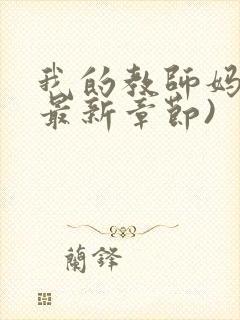 我的教師妈
最新章節)
蘭鋒